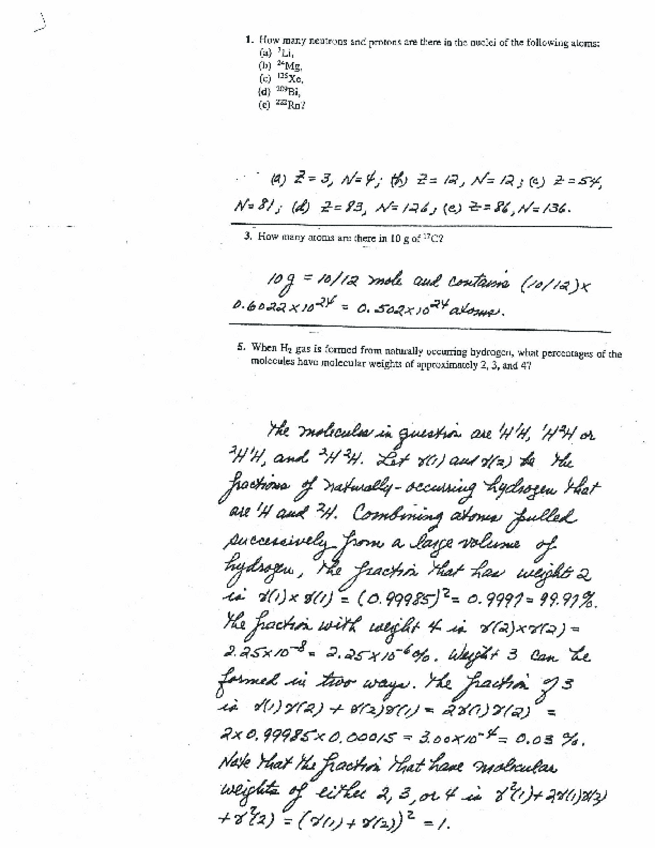 1. How many neutrons and protons are there in the nuclei of the following atoms:
(a) ⁷Li,
(b) ²⁴Mg,
(c) ¹³⁵Xe,
(d) ²⁰⁹Bi,
(e) ²²²Rn?
(a) Z = 3, N = 4; (b) Z = 12, N = 12; (c) Z = 54,
N = 81; (d) Z = 83, N = 126; (e) Z = 86, N = 136.
3. How many atoms are there in 10 g of ¹²C?
10 g = 10/12 mole and contains (10/12) x
0.6022 x 10²⁴ = 0.502 x 10²⁴ atoms.
5. When H₂ gas is formed from naturally occurring hydrogen, what percentages of the
molecules have molecular weights of approximately 2, 3, and 4?
The molecules in question are ¹H¹H, ¹H²H or
²H¹H, and ²H²H. Let γ(1) and γ(2) be the
fractions of naturally-occurring hydrogen that
are ¹H and ²H. Combining atoms pulled
successively from a large volume of
hydrogen, the fraction that has weight 2
is γ(1) x γ(1) = (0.99985)² = 0.9997 = 99.97%.
The fraction with weight 4 is γ(2) x γ(2) =
2.25 x 10⁻⁸ = 2.25 x 10⁻⁶ %. Weight 3 can be
formed in two ways. The fraction of 3
is γ(1)γ(2) + γ(2)γ(1) = 2γ(1)γ(2) =
2 x 0.99985 x 0.00015 = 3.00 x 10⁻⁴ = 0.03 %.
Note that the fraction that have molecular
weights of either 2, 3, or 4 is γ²(1) + 2γ(1)γ(2)
+ γ²(2) = (γ(1) + γ(2))² = 1.